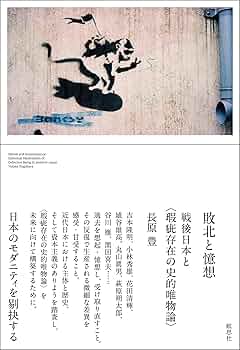 BANKSY
Historical Materialism of
Defective Being in postwar Japan
Yutaka Nagahara
敗北と憶想
戦後日本と
〈瑕疵存在の史的唯物論〉
長原 豊
航思社
吉本隆明、小林秀雄、花田清輝、
埴谷雄高、丸山眞男、萩原朔太郎、
谷川雁、黒田喜夫……
過去を想起=憶想し、受け取り直すこと。
その反復で生産される微細な差異を
感受=甘受すること。
近代日本における主体と歴史、
そして資本主義のありようを踏査し、
〈瑕疵存在の史的唯物論〉を
未来に向けて構築するために。
日本のモダニティを剔抉する